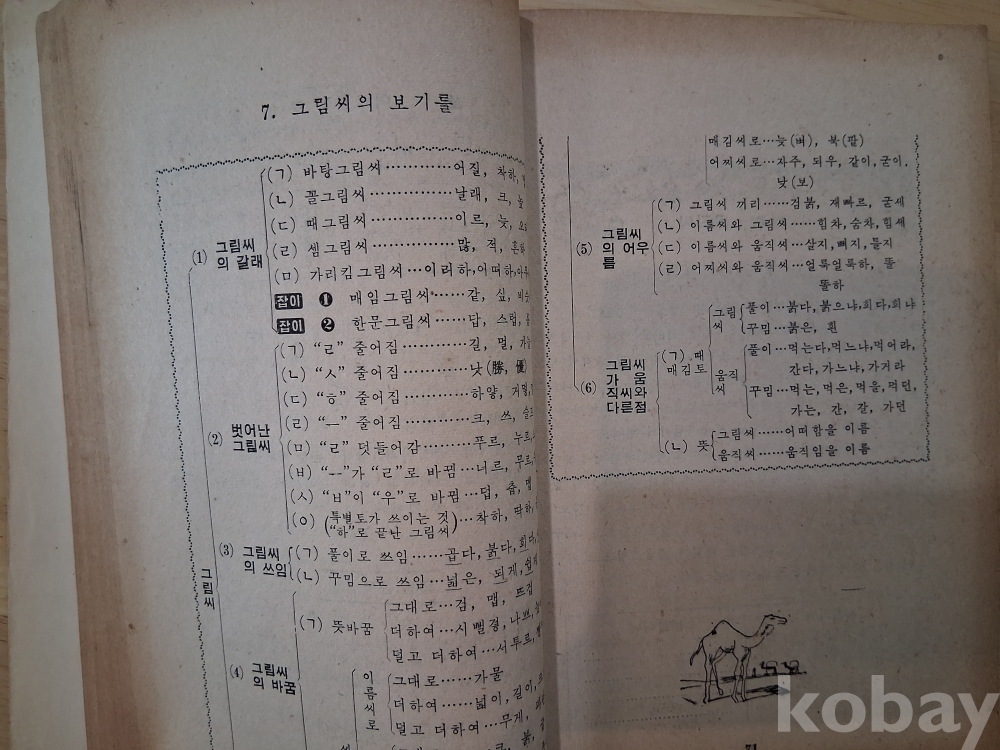 7. 그림씨의 보기틀
그림씨
(1) 그림씨의 갈래
(ㄱ) 바탕그림씨…………어질, 착하,
(ㄴ) 꼴그림씨……………날래, 크,
(ㄷ) 때그림씨……………이르, 늦,
(ㄹ) 셈그림씨……………많, 적,
(ㅁ) 가리킴그림씨…이러하, 어떠하,
잡이 ❶ 매임그림씨……같, 싶,
잡이 ❷ 한문그림씨……답, 스럽,
(2) 벗어난 그림씨
(ㄱ) “ㄹ” 줄어짐…………길, 멀,
(ㄴ) “ㅅ” 줄어짐…………낫(勝, 優)
(ㄷ) “ㅎ” 줄어짐…………하양,
(ㄹ) “ㅡ” 줄어짐…………크, 쓰,
(ㅁ) “ㄹ” 덧들어감………푸르,
(ㅂ) “ㅡ”가 “ㄹ”로 바뀜…니르,
(ㅅ) “ㅂ”이 “우”로 바뀜…덥, 춥, 맵
(ㅇ) (특별토가 쓰이는 것)…착하, 딱하,
“하”로 끝난 그림씨
(3) 그림씨의 쓰임
(ㄱ) 풀이로 쓰임……곱다, 붉다, 희다,
(ㄴ) 꾸밈으로 쓰임…넓은, 되게,
(4) 그림씨의 바꿈
(ㄱ) 뜻바꿈
그대로…검, 맵, 뜨겁
더하여…시뻘경, 나쁘,
덜고 더하여…서투르,
이름씨로
그대로……가물
더하여……넓이, 길이,
덜고 더하여…무게,
매김씨로…늦(벼), 북(팥)
어찌씨로…자주, 되우, 같이, 굳이,
낮(보)
(5) 그림씨의 어우름
(ㄱ) 그림씨 끼리……검붉, 재빠르, 굳세
(ㄴ) 이름씨와 그림씨……힘차, 숨차, 힘세
(ㄷ) 이름씨와 움직씨…살지, 뼈지, 틀지
(ㄹ) 어찌씨와 움직씨…얼룩얼룩하, 똘
똘하
(6) 그림씨가 움직씨와 다른점
(ㄱ) 때매김토
그림씨
풀이…붉다, 붉으냐, 희다, 희냐
꾸밈…붉은, 흰
움직씨
풀이…먹는다, 먹느냐, 먹어라,
간다, 가느냐, 가거라
꾸밈…먹는, 먹은, 먹을, 먹던,
가는, 간, 갈, 가던
(ㄴ) 뜻
그림씨……어떠함을 이름
움직씨……움직임을 이름
kobay